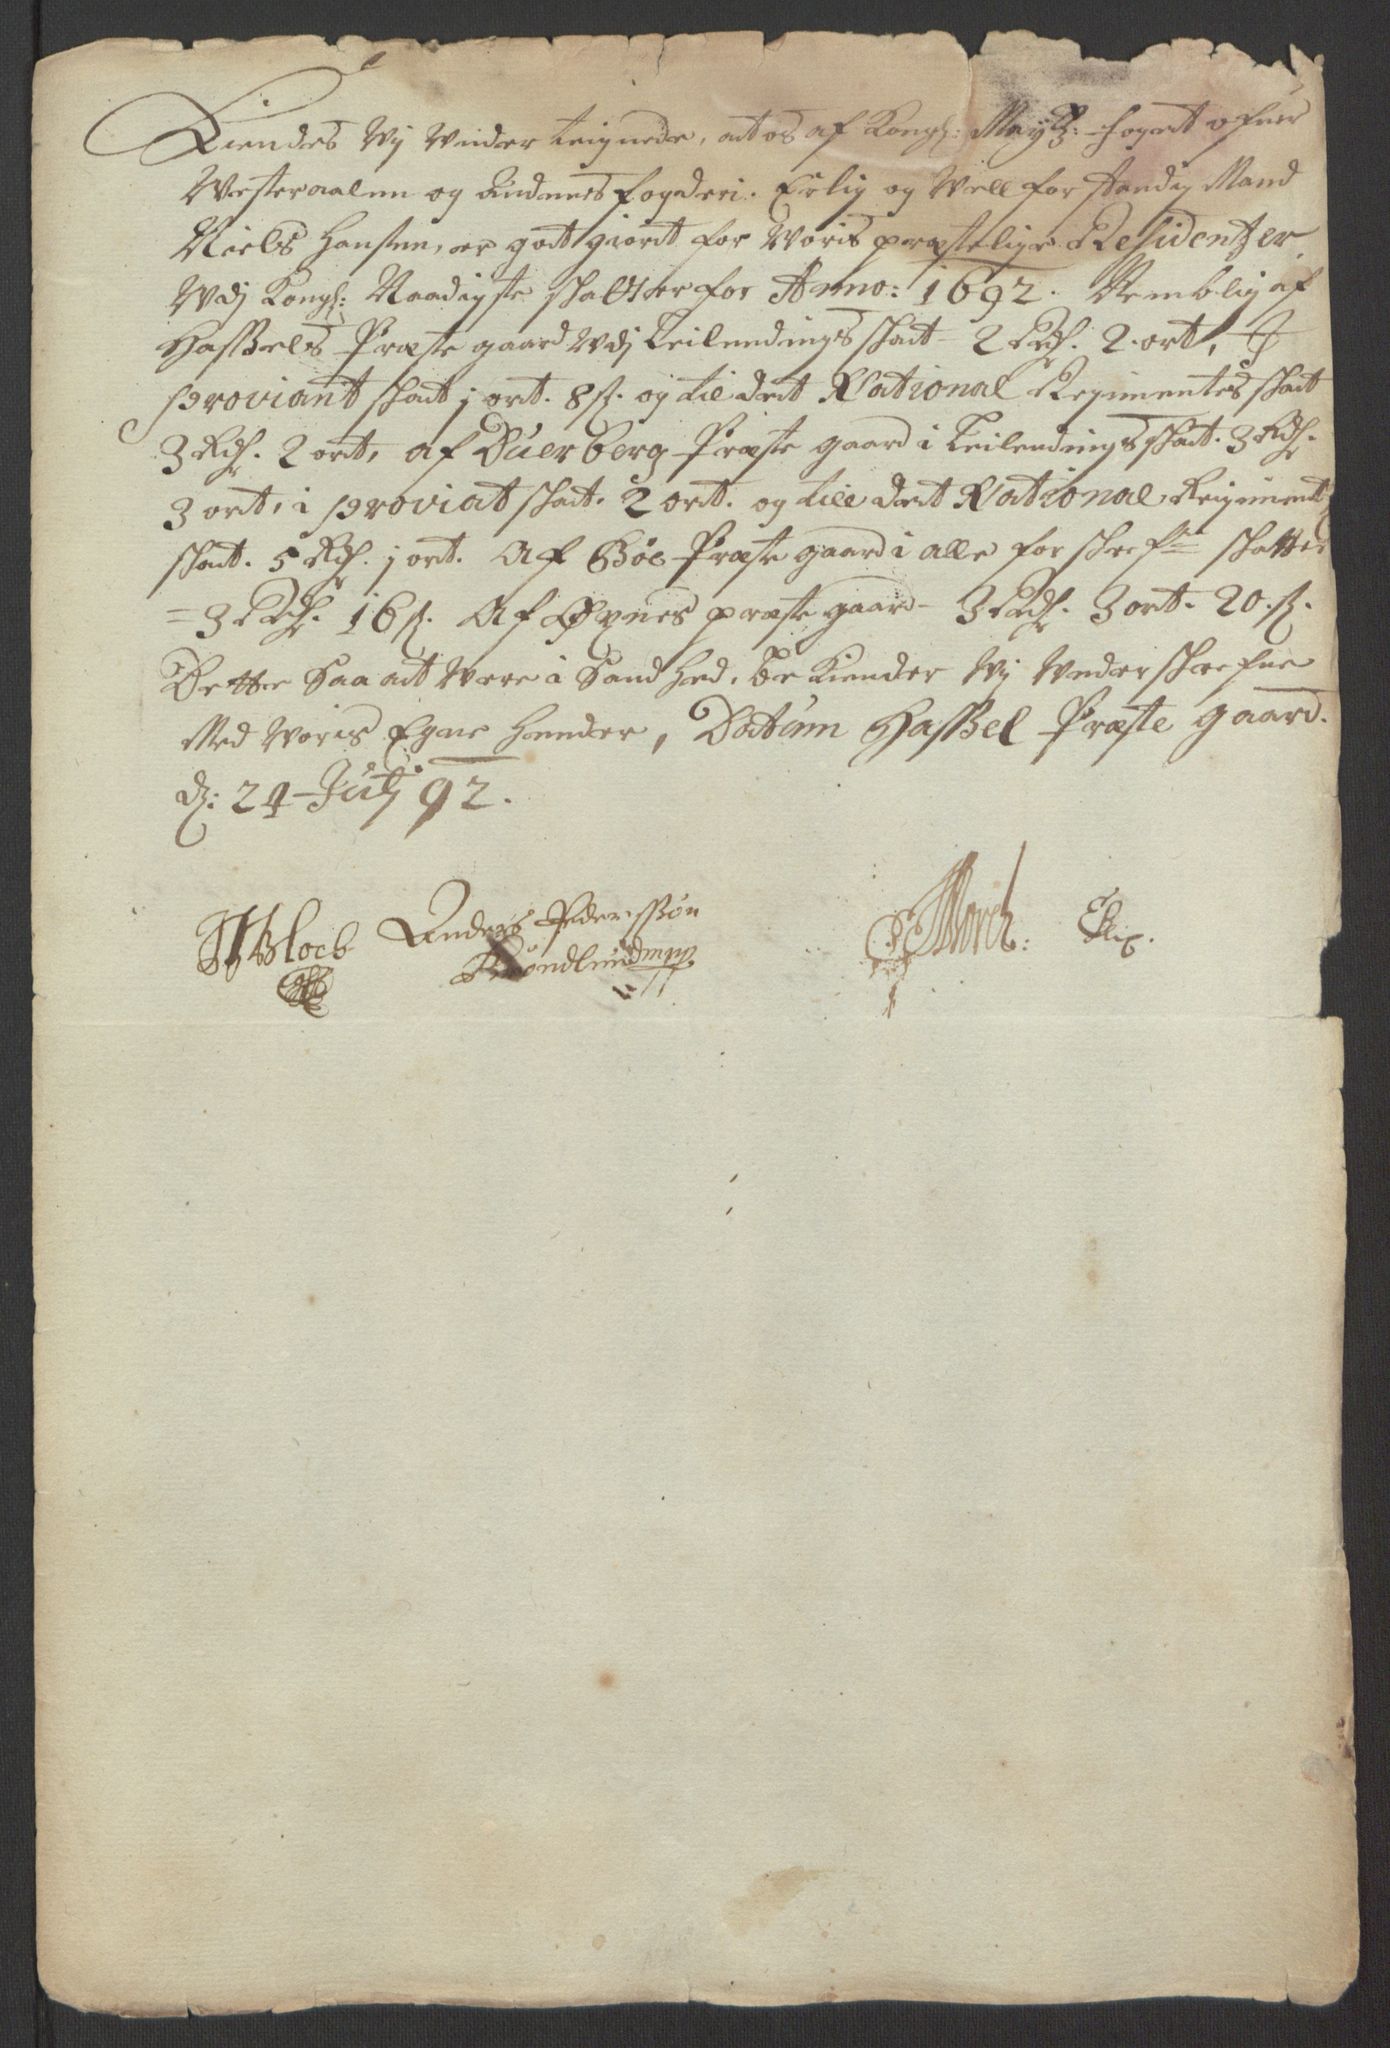 Kiendes Wj Under teignede, at os af Kongl: Mayttz: fogedt ofuer
Westeraalen og Andenes fogderi. Erlig og Well forstandig Mand
Niels Hansen, er godt giort for Woris præstelige Residentzer
Udj Kongl: Naadigste skatter for Anno: 1692. Nemblig af
Hassels Præste gaard Udj Leilendings skat 2 Rdr. 2 ort, I
proviant skat j ort. 8 s. og til det National Regimentes skat
3 Rdr. 2 ort, af Duerberg Præste gaard i Leilendings skat. 3 Rdr.
3 ort, i proviat skat. 2 ort. og till det National Regiments
skat. 5 Rdr. j ort. Af Bøe Præste gaard i alle for skrefne skatter
= 3 Rdr. 16 s. Af Øxnes præste gaard 3 Rdr. 3 ort. 20 s.
Dette Saa at Were i Sandhed, be Kiender Wj Underskrefne
Med Woris Egne Hender, Datum Hassel Præste gaard.
d: 24 Julj 92.
Bloch Anders Pedersøn Morch:
Røndlund mpp